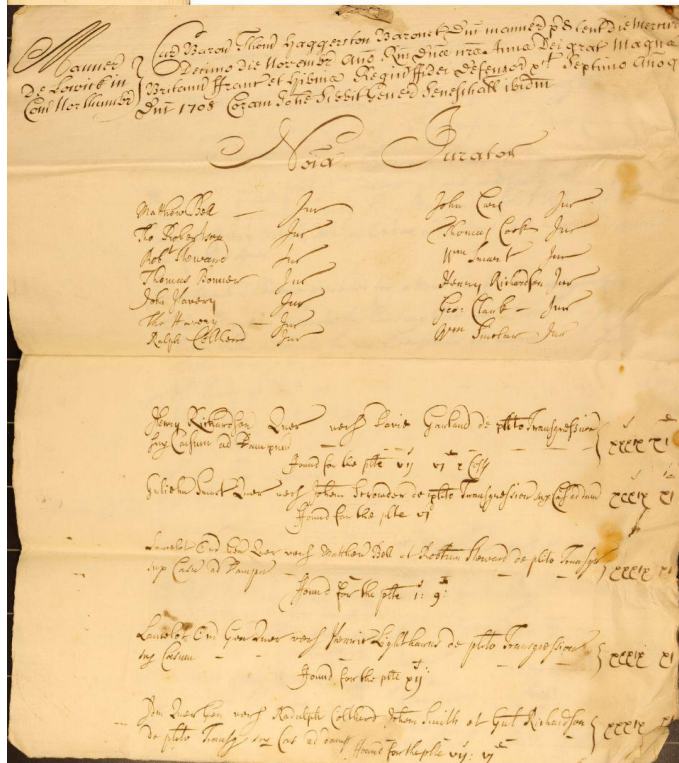 Manner
De Lowick in
Com Northumbr
Cur Baron Thome Haggerston Baronet Dni manner pd tent die Mercur
Decimo die November Ano Rni Dne nre Anne Dei grat Magne
Britann ffranc et Hibnie Regine ffidei Defensor &c Septimo Anoq
Dni 1708 Coram Johe Gener Seneschall ibidm
Noia Jurator
Matthew Bell — Jur
Tho Robertson Jur
Robt Steward Jur
Thomas Bonner Jur
John Havery Jur
Tho Havery — Jur
Ralph Coltherd Jur
John Carr Jur
Thomas Cook Jur
Wm Smart Jur
Henry Richardson Jur
Geo: Clark — Jur
Wm Sinclar Jur
Henry Richardson Quer versus Garland de plito Transgression
sup Casum ad Dampnum xxxix xi
Found for the plte vij vi
Smart Quer versus Johem de plito Transgression sup Cas ad xxxix xi
Found for the plte vi
Lancelot Ord Gen Quer versus Matthew Bell et Robtum Steward de plito Transgr
sup Casu ad Dampn xxxix xi
Found for the plte 1: 9:
Lancelot Ord Gen Quer versus Lightharns de plito Transgression
sup Casum xxxix xi
Found for the plte xij:
Idm Quer Gen versus Radulph Coltherd Johem Smith et Gul Richardson
de plito Transgr sup Cas ad damp xxxix xi
Found for the plte vij: vj